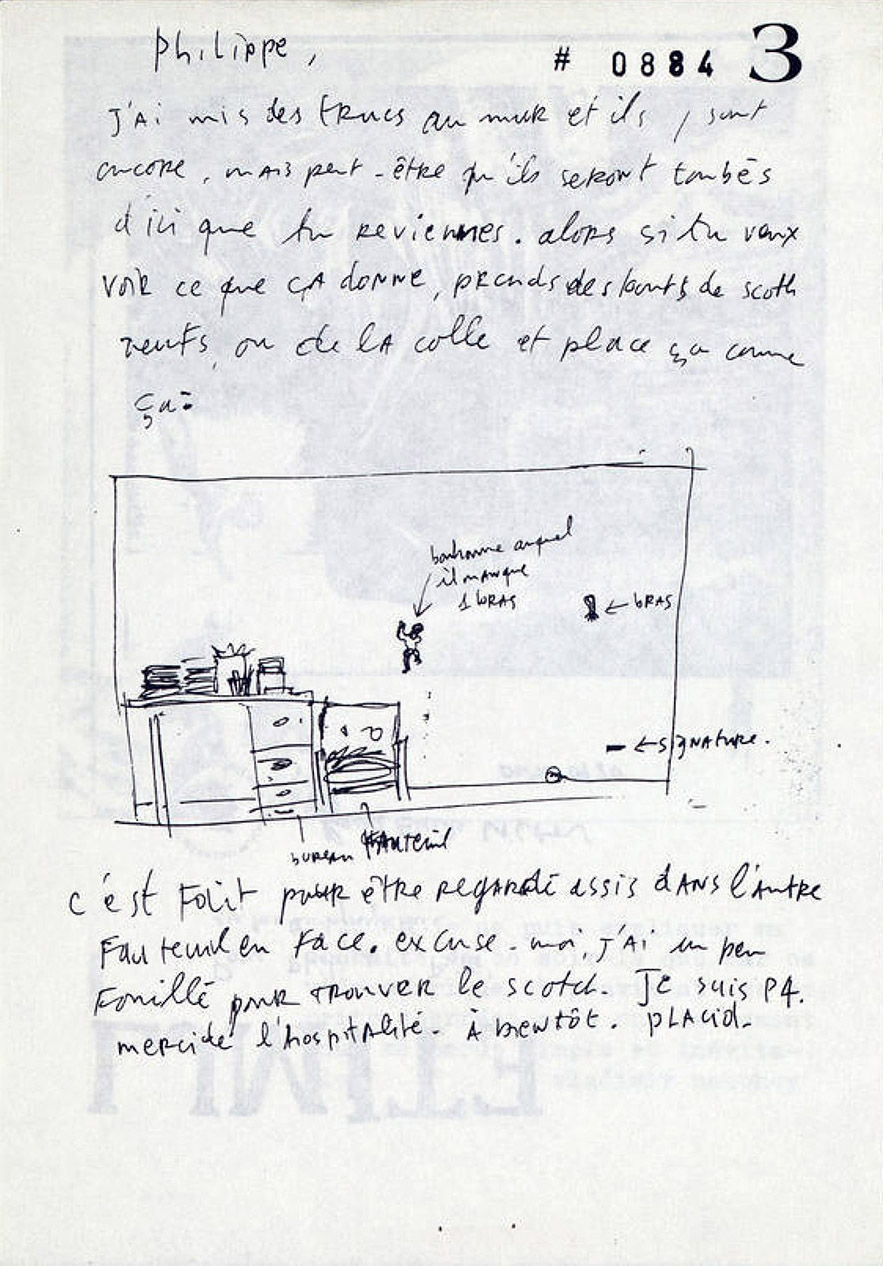 Philippe,
# 0884 3
J'Ai mis des trucs au mur et ils y sont
encore, mais peut-être qu'ils seront tombés
d'ici que tu reviennes. alors si tu veux
voir ce que ÇA donne, prends des bouts de scoth
neufs, ou de lA colle et place ça comme
ça:
bonhomme auquel
il manque
1 bRAS
← bRAS
← SIGNATURE.
bureau fAuteuil
c'est FAit pour être regardé assis dANS l'Autre
FAuteuil en FAce. excuse-moi, j'Ai un peu
Fouillé pour trouver le scotch. Je suis P4.
merci de l'hospitAlité. À bientôt. plAcid.
LIMITE